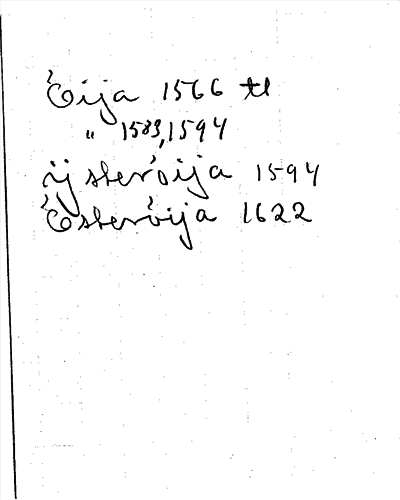 Öija 1566 tl
" 1583, 1594
ijsteröija 1594
Österöija 1622